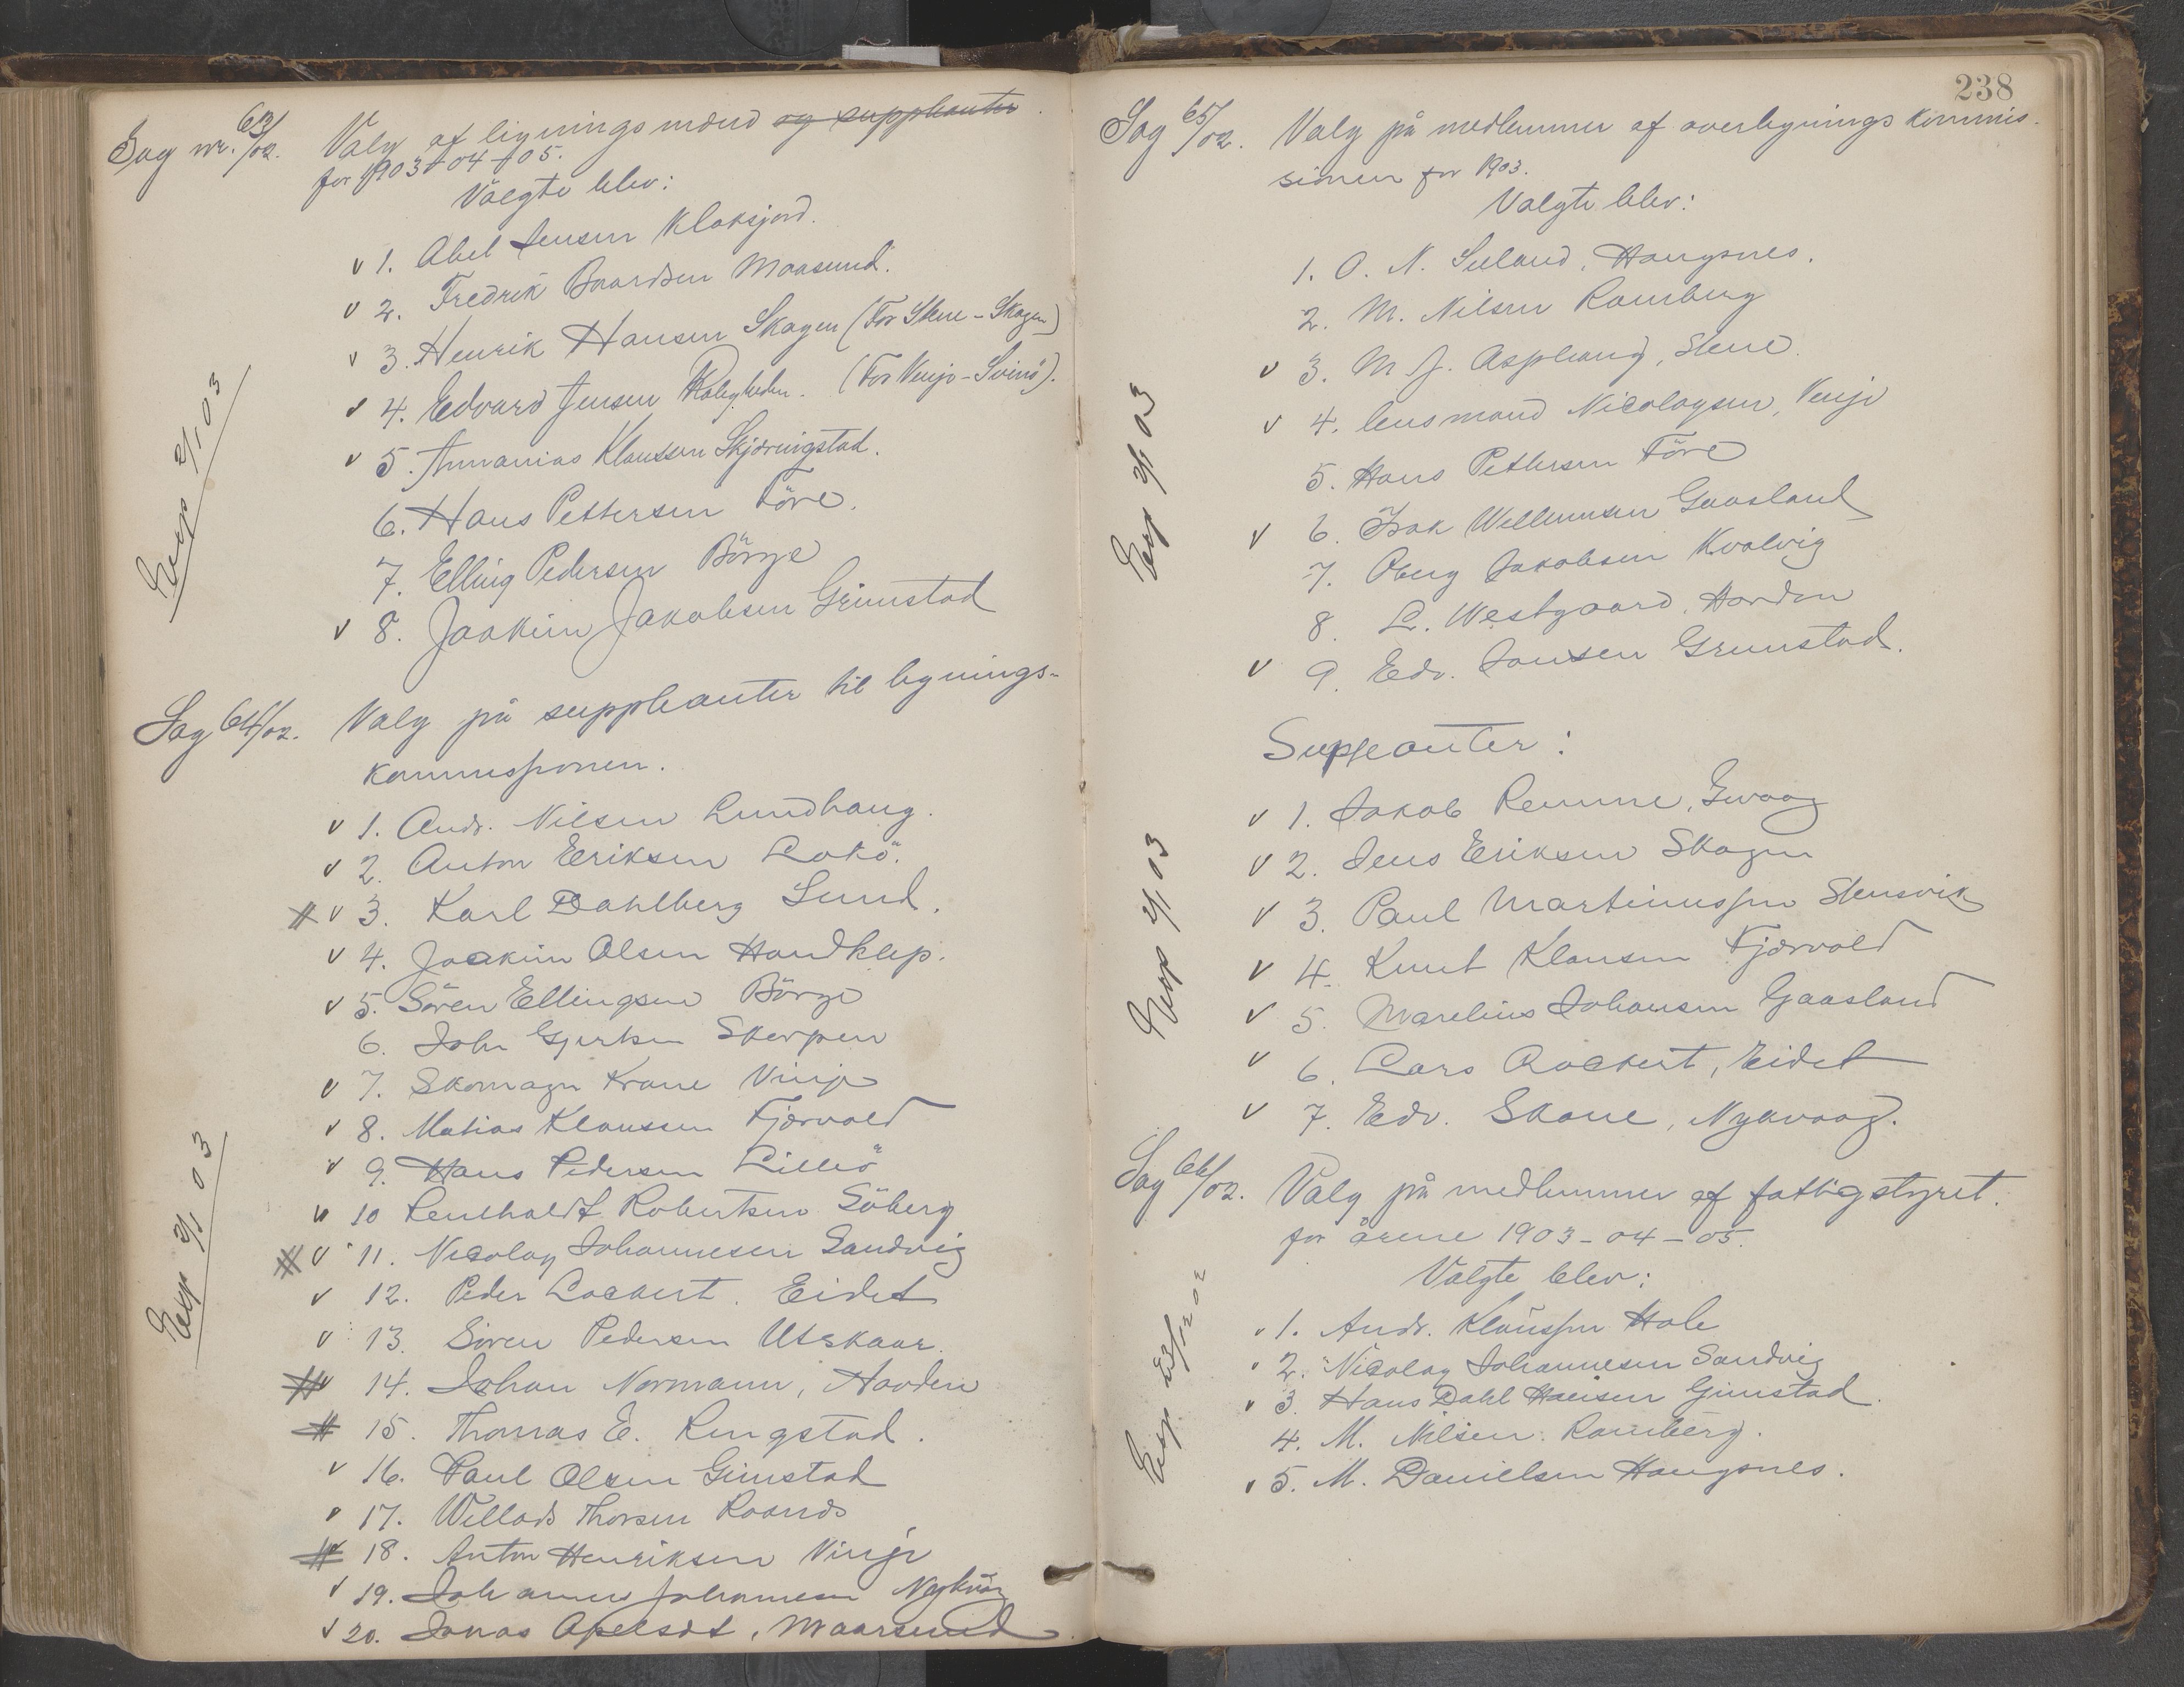 Sag nr. 63/02. Valg af ligningsmænd og suppleanter
for 1903-04-05.
Valgte blev:
v 1. Abel Jensen Klaksjord.
v 2. Fredrik Baardsen Maasund.
v 3. Henrik Hansen Skagen (For Stene-Skagen)
v 4. Edvard Jensen (For Vinje-Svinö).
v 5. Annanias Klaussen Skjørringstad.
6. Hans Pettersen Före.
7. Elling Pedersen Börge
v 8. Joakim Jakobsen Grimstad
Exp 2/1 03
Sag 64/02. Valg på suppleanter til lignings-
kommissionen.
v 1. Andr. Nilsen Lundhaug.
v 2. Anton Eriksen Lokö.
# v 3. Karl Dahlberg Sund.
v 4. Joakim Olsen Haudklep.
v 5. Sören Ellingsen Börge
6. John Gjertsen Skorpen
v 7. Skomager Krane Vinje
v 8. Matias Klaussen Fjærvold
v 9. Hans Pedersen Lillеö
v 10 Robertsen Söberg
# v 11. Nicolay Johannesen Sandvig
v 12. Peder Lockert. Eidet
v 13. Sören Pedersen Utskaar.
# v 14. Johan Normann, Hovden
# 15. Thomas E. Ringstad.
v 16. Paul Olsen Gimstad
v 17. Willads Thorsen
# v 18. Anton Henriksen Vinje
v 19. Johannes Johannesen
v 20. Jonas Apelsdt, Maarsund
Exp 2/1 03
238
Sag 65/02. Valg på medlemmer af overlignings kommis-
sionen for 1903.
Valgte blev:
1. O. N. Seeland, Haugsnes.
2. M. Nilsen Ramberg
v 3. M J. Asphaug, Stene.
v 4. lensmand Nicolaysen, Vinje
5. Hans Pettersen Före
v 6. Isak Willumsen Gaasland
7. Jakobsen Kvalvig
8. L. Westgaard, Hovden
v 9. Edv. Jansen Grimstad.
Exp 2/1 03
Suppleanter:
v 1. Jakob Remme,
v 2. Jens Eriksen Skagen
v 3. Paul Martinussen Stensvik
v 4. Knut Klausen Fjærvold
v 5. Marelius Johansen Gaasland
v 6. Lars Lockert, Eidet
v 7. Edv. Skane, Nykvaag.
Exp 2/1 03
Sag 66/02. Valg på medlemmer af fattigstyret.
for årene 1903-04-05.
Valgte blev:
v 1. Andr. Klaussen Hole
v 2. Nicolay Johannesen Sandvig
v 3. Hans Dahl Hansen Gimstad.
4. M. Nilsen Ramberg.
v 5. M. Danielsen Haugsnes.
Exp 23/12 02